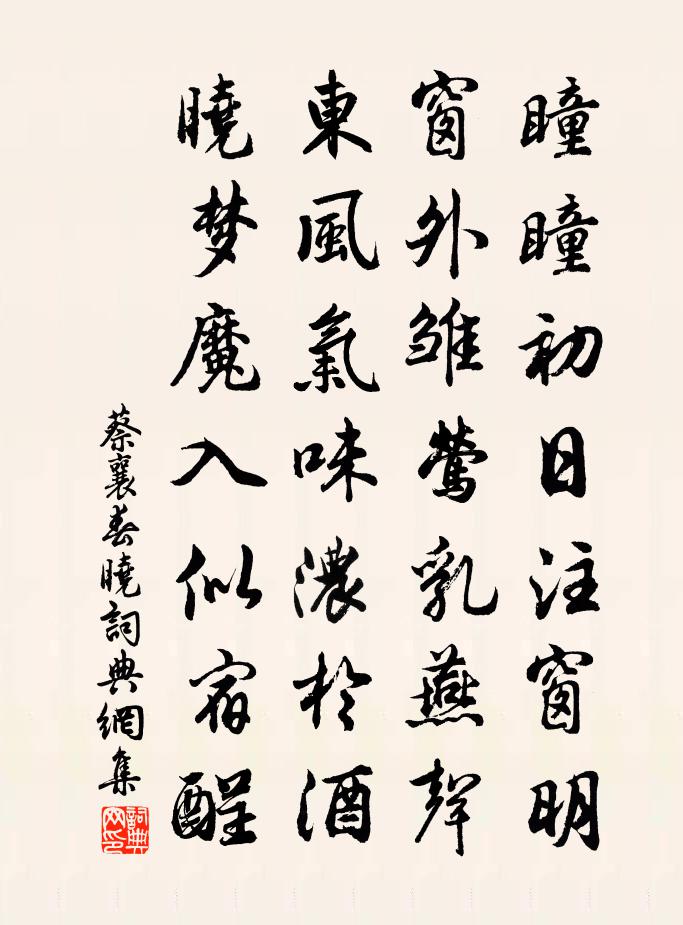 瞳瞳初日注窗明
窗外雏鶯乳燕聲
東風氣味濃於酒
曉梦魔入似宿醒
蔡襄春曉詞典網集
詞典網印